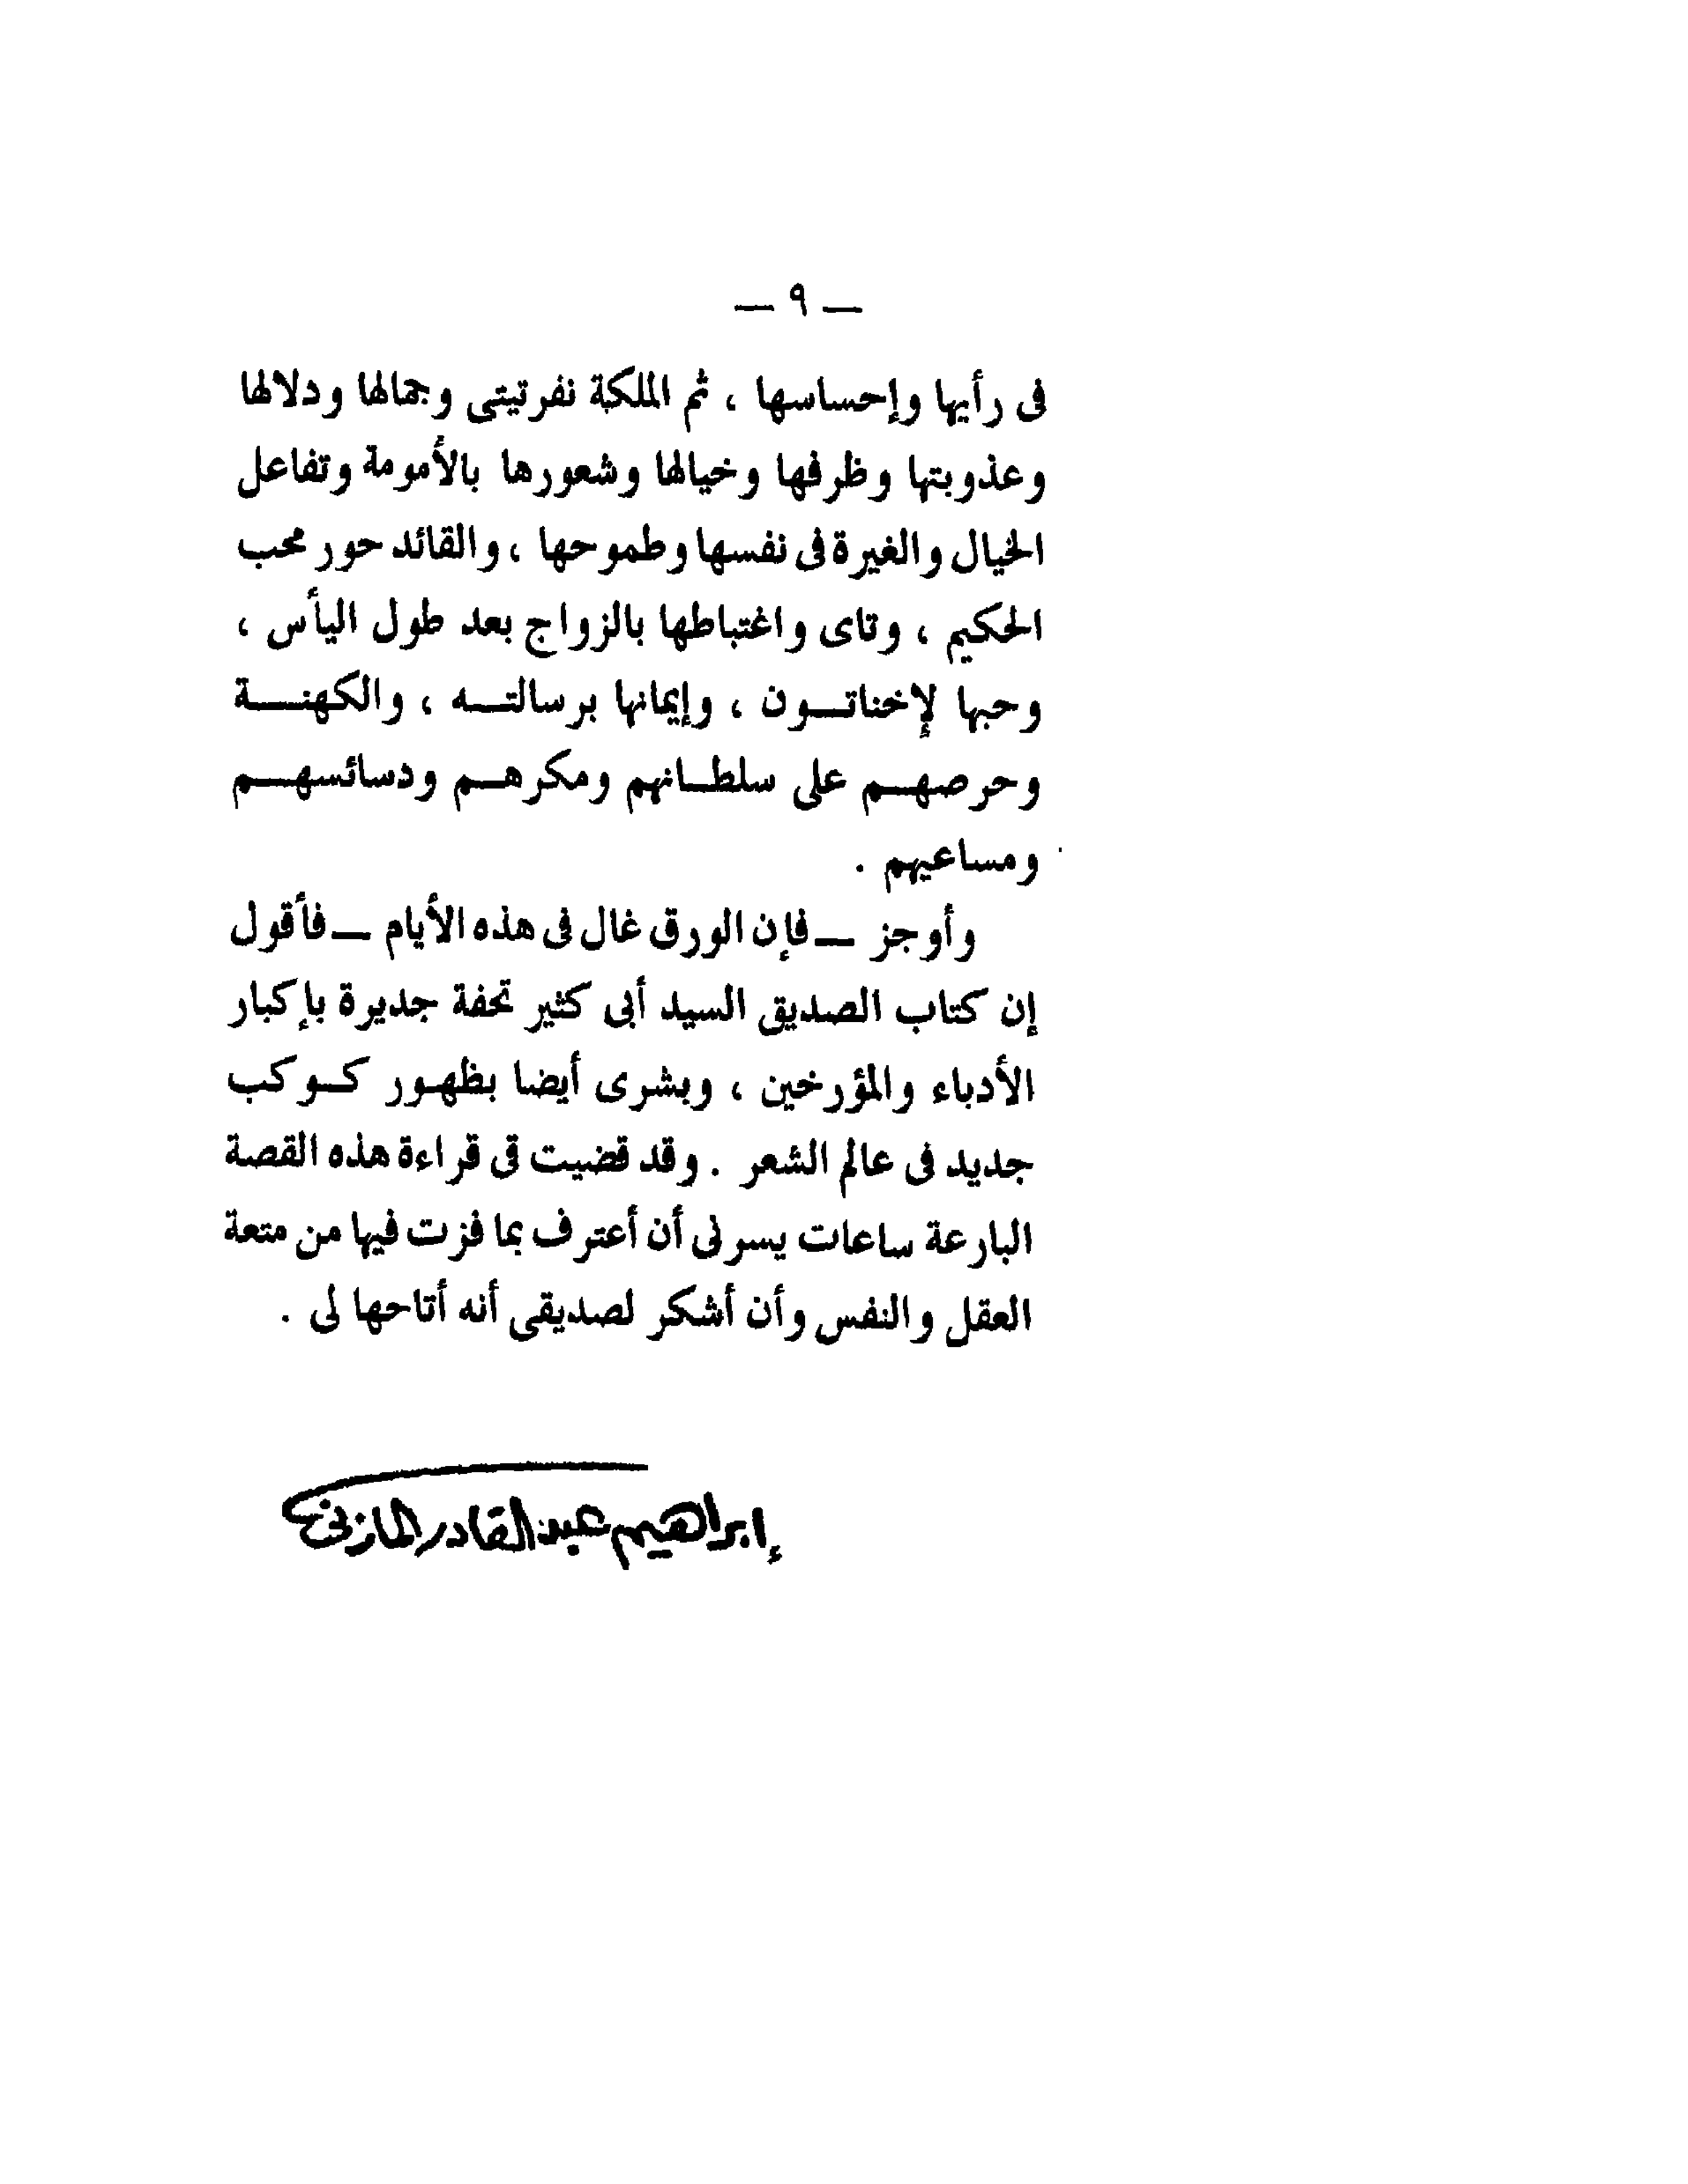 — ٩ —
فى رأيها وإحساسها ، ثم الملكة نفرتيتى وجمالها ودلالها
وعذوبتها وظرفها وخيالها وشعورها بالأمومة وتفاعل
الخيال والغيرة فى نفسها وطموحها ، والقائد حور محب
الحكيم ، وتاى واغتباطها بالزواج بعد طول اليأس ،
وحبها لإخناتـــون ، وإيمانها برسالتـــه ، والكهنـــة
وحرصهـــم على سلطـــانهم ومكرهـــم ودسائسهـــم
ومساعيهم .
وأوجز — فإن الورق غال فى هذه الأيام — فأقول
إن كتاب الصديق السيد أبى كثير تحفة جديرة بإكبار
الأدباء والمؤرخين ، وبشرى أيضا بظهـور كـوكب
جديد فى عالم الشعر . وقد قضيت فى قراءة هذه القصة
البارعة ساعات يسرنى أن أعترف بما فزت فيها من متعة
العقل والنفس وأن أشكر لصديقى أنه أتاحها لى .
إبراهيم عبد القادر المازنى